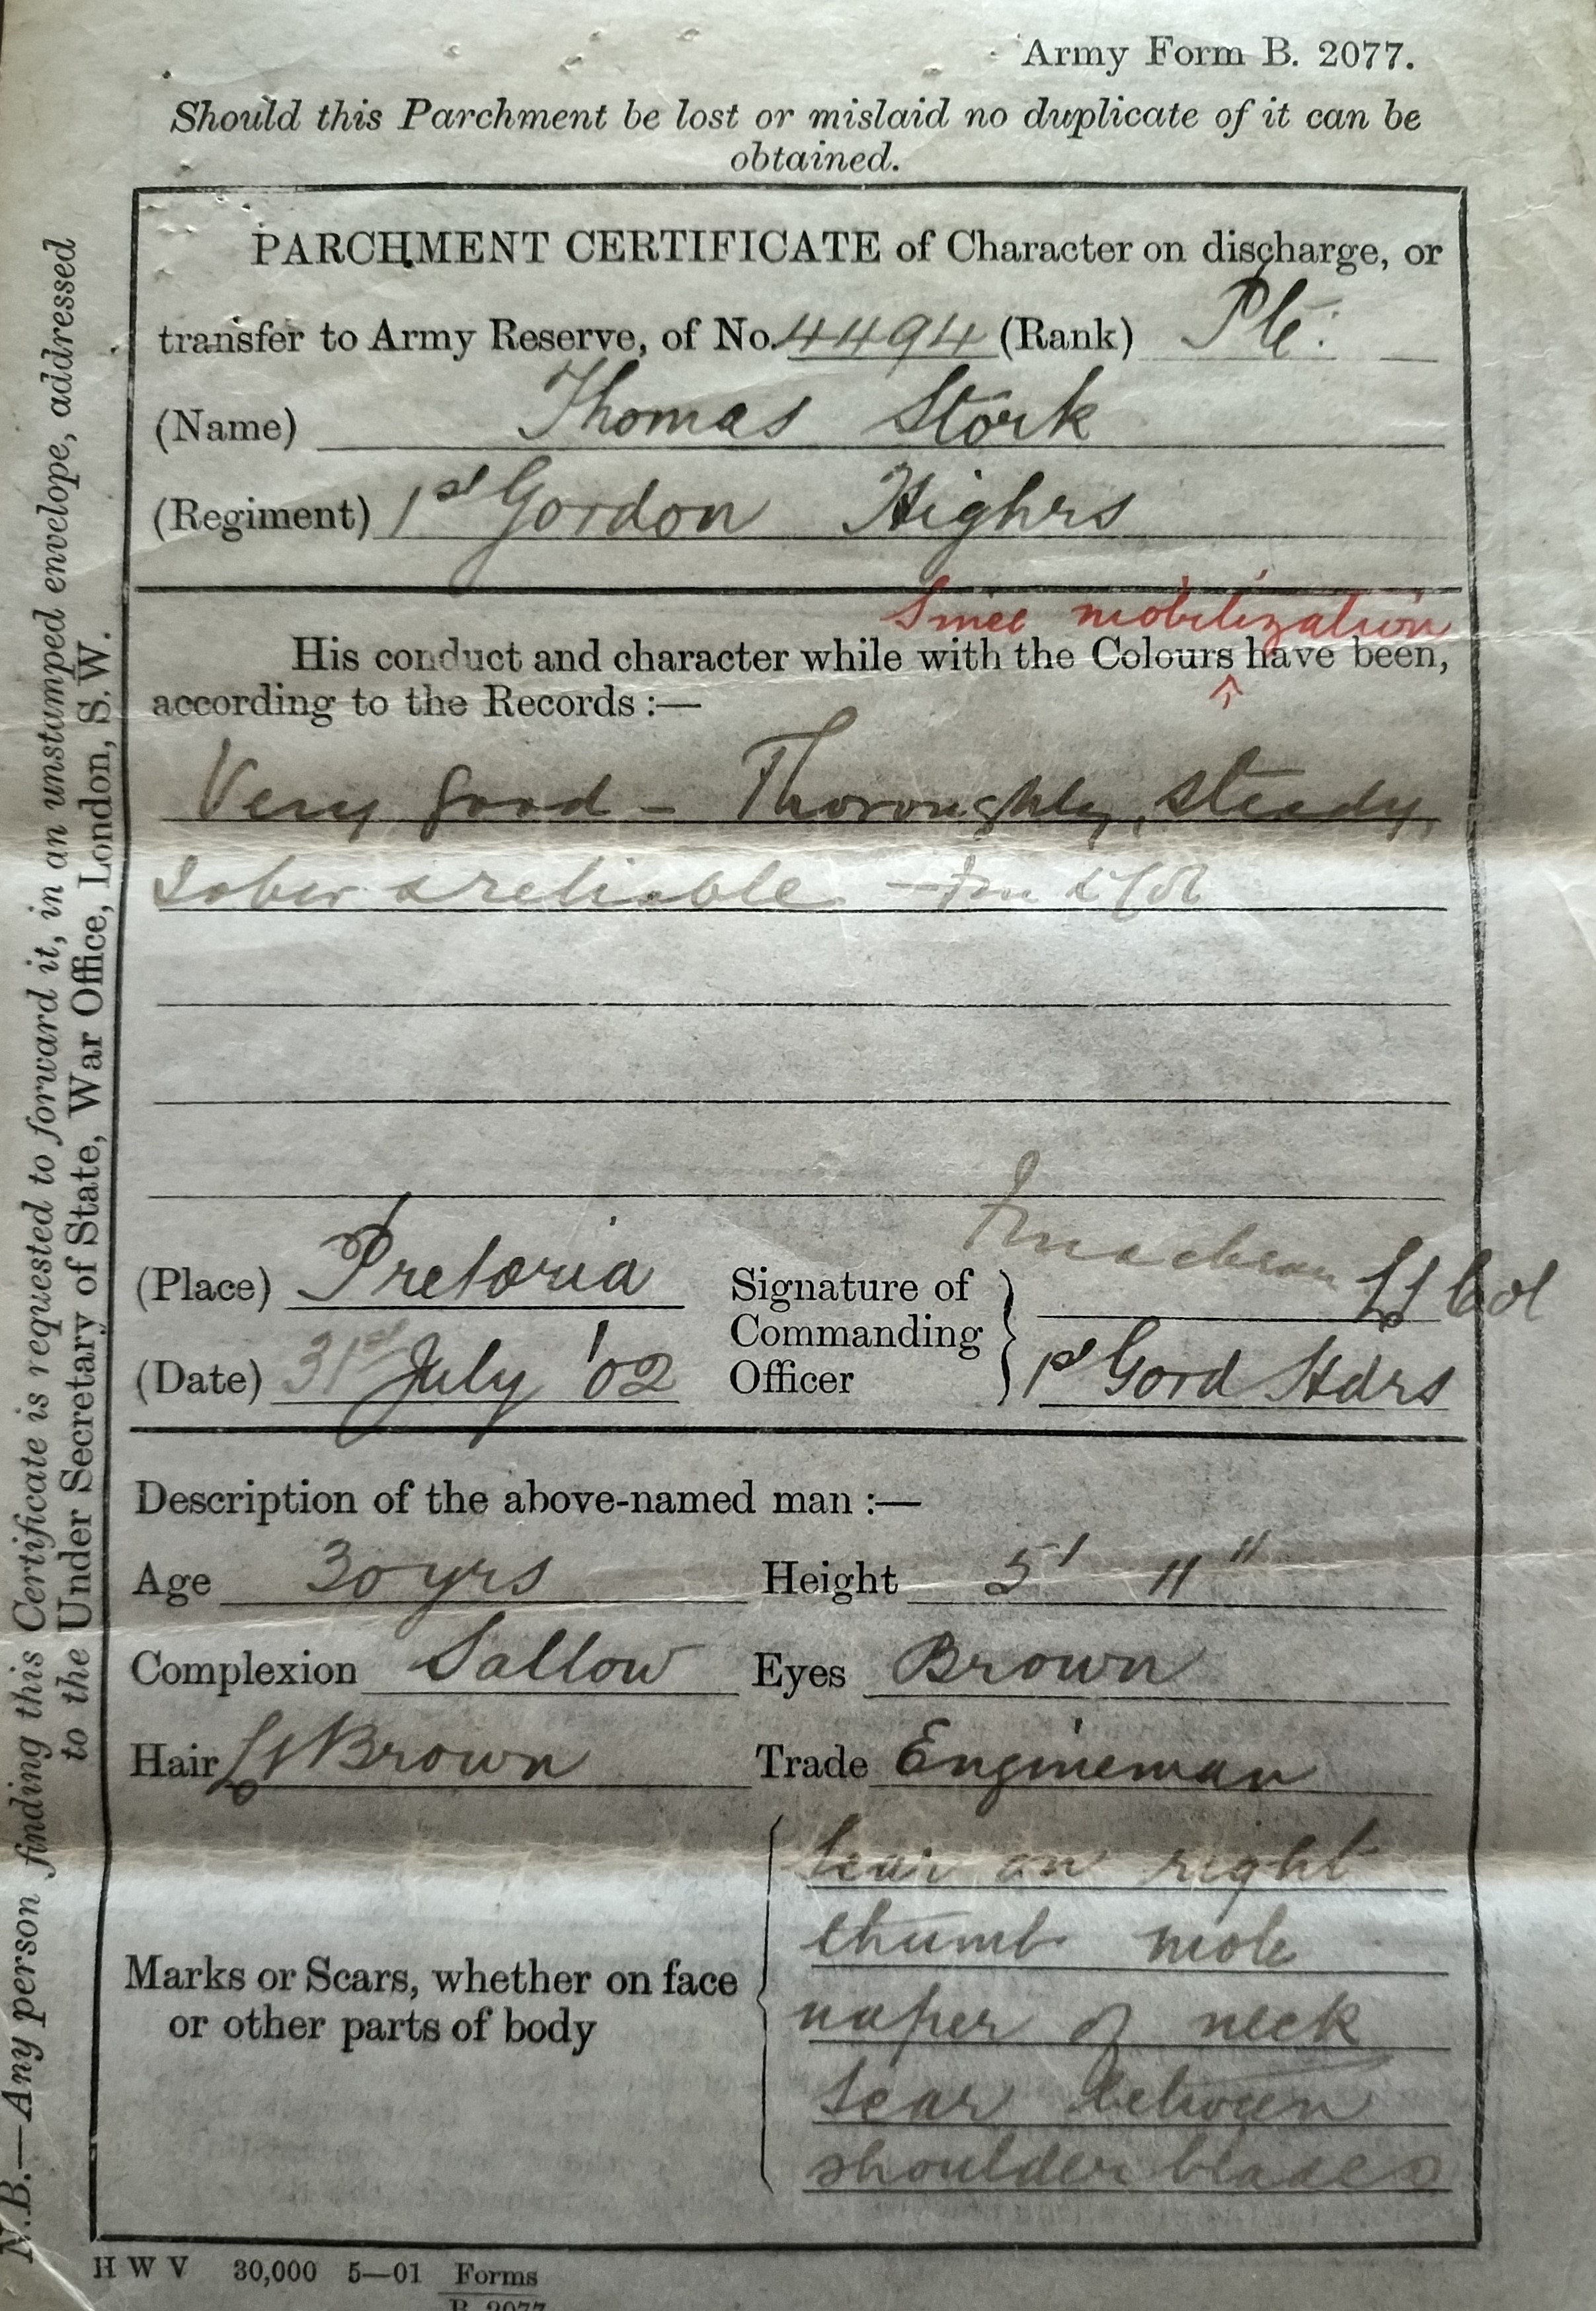 Army Form B. 2077.
Should this Parchment be lost or mislaid no duplicate of it can be
obtained.
PARCHMENT CERTIFICATE of Character on discharge, or
transfer to Army Reserve, of No. 4494 (Rank) Pte.
(Name) Thomas Stork
(Regiment) 1st Gordon Highrs
Since mobilization
His conduct and character while with the Colours ^ have been,
according to the Records :—
Very good – Thoroughly, steady,
sober & reliable –
(Place) Pretoria
(Date) 31st July '02
Signature of
Commanding
Officer
Lt Col
1st Gord Hdrs
Description of the above-named man :—
Age 30 yrs Height 5' 11"
Complexion Sallow Eyes Brown
Hair Lt Brown Trade Engineman
Marks or Scars, whether on face
or other parts of body
Scar on right
thumb mole
naper of neck
scar between
shoulder blades
H W V 30,000 5—01 Forms
B. 2077
N.B.—Any person finding this Certificate is requested to forward it, in an unstamped envelope, addressed
to the Under Secretary of State, War Office, London, S.W.